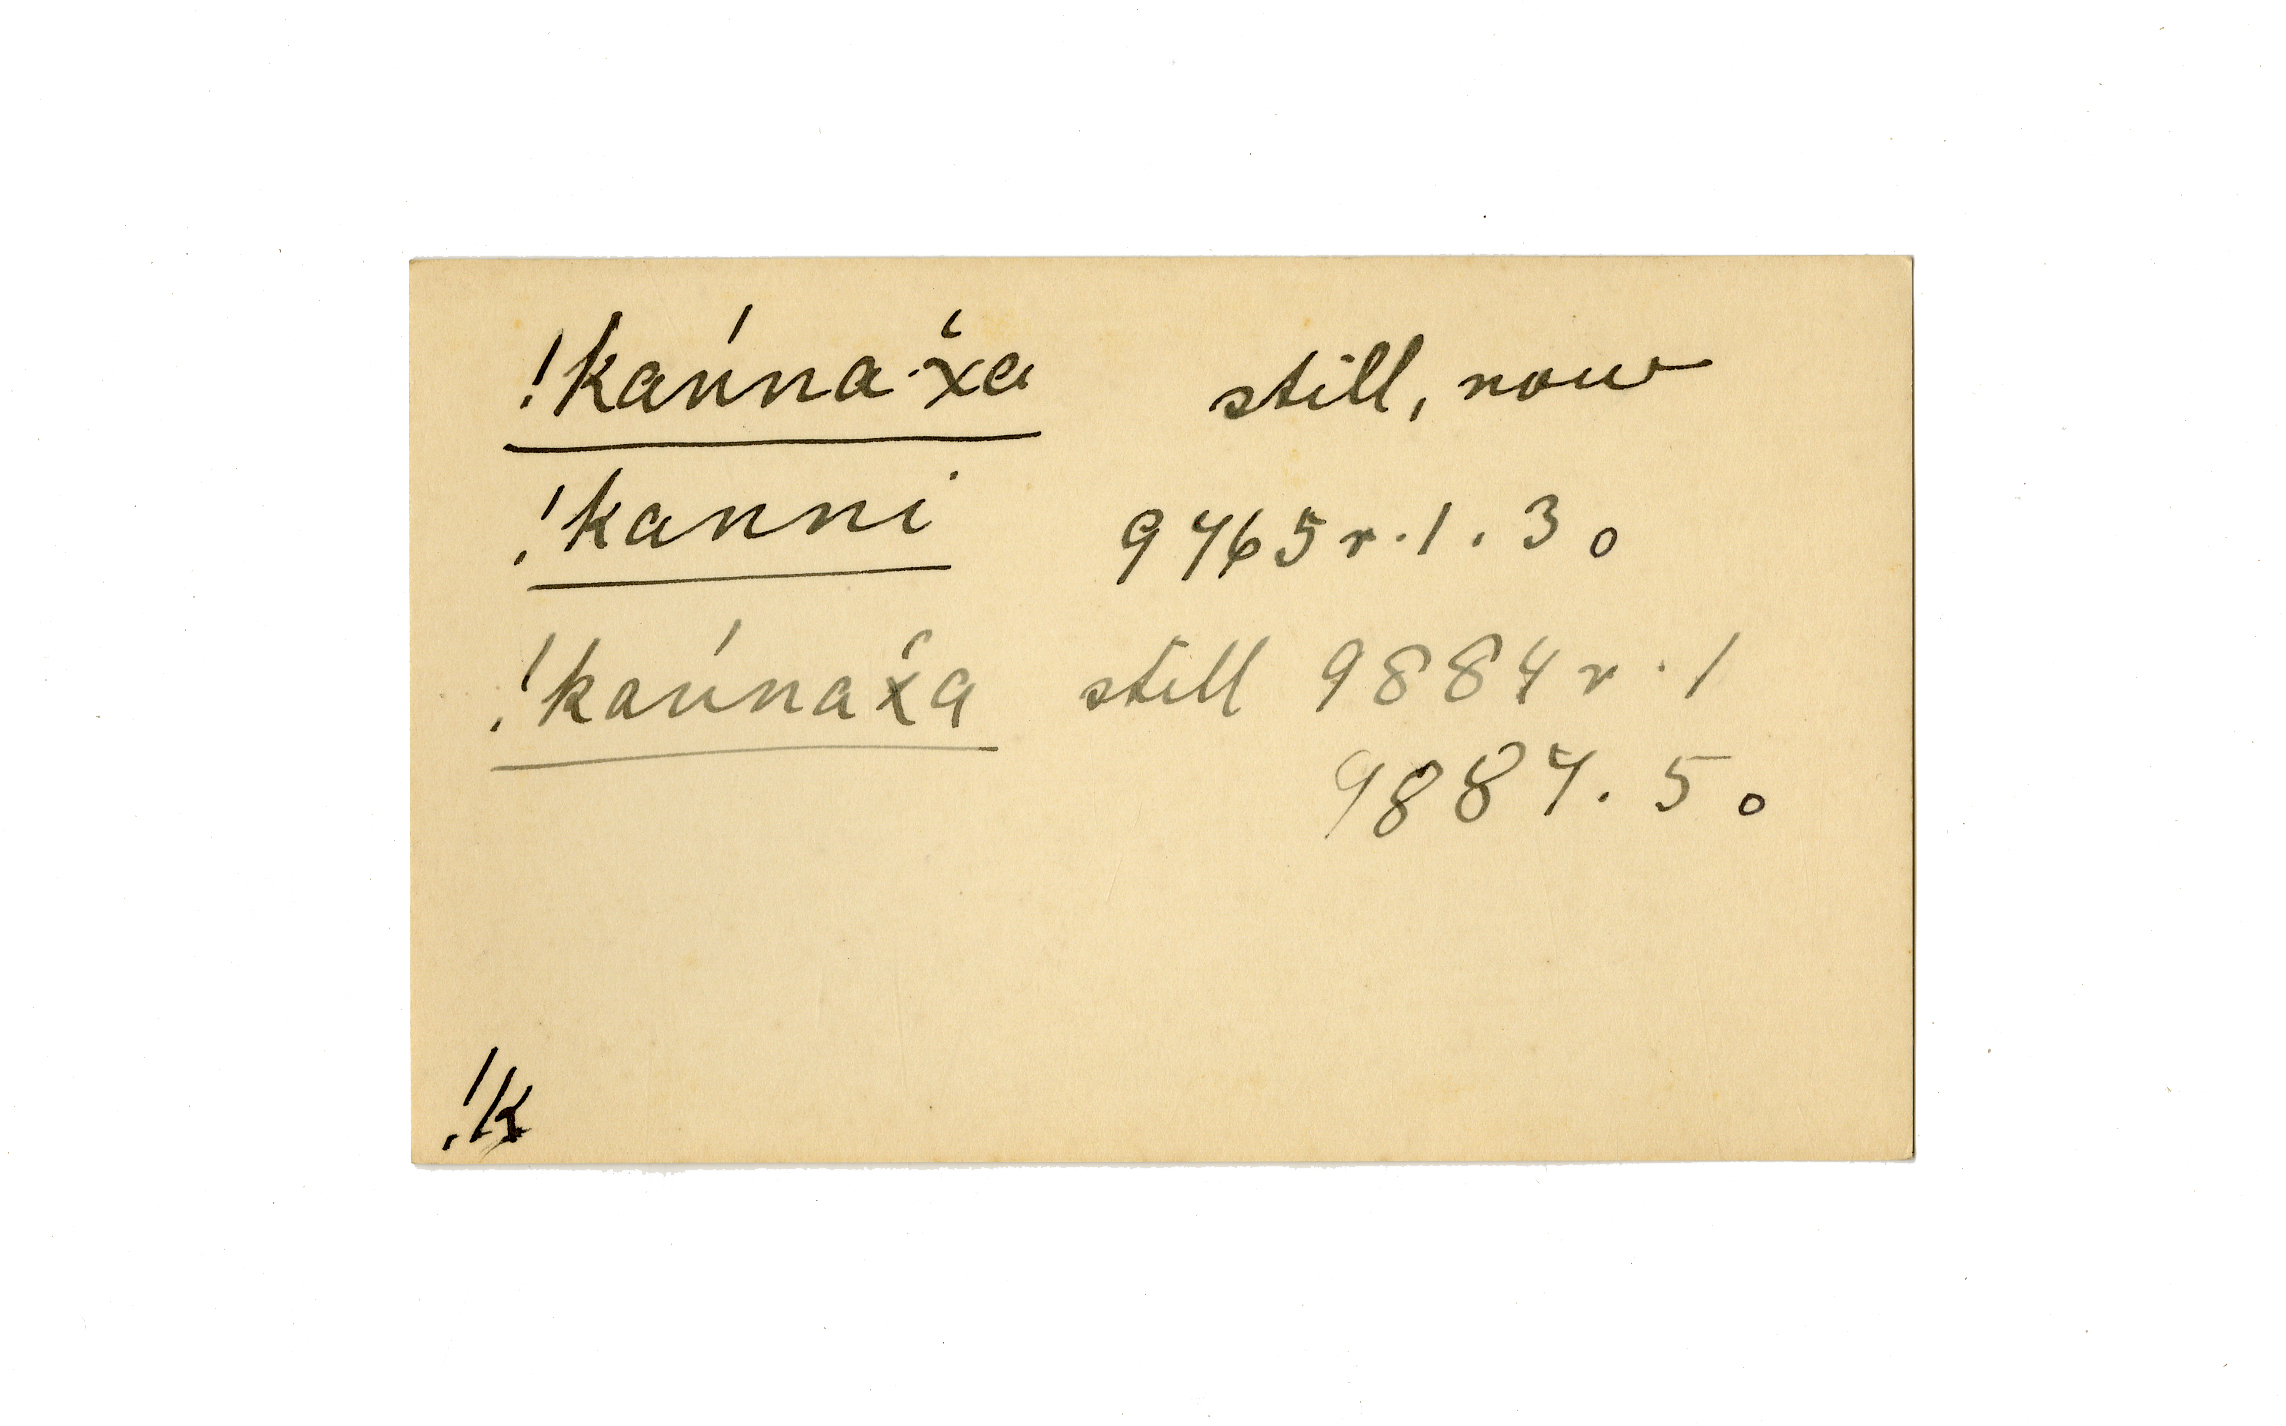 !kaúnna-x̌a still, now
!kanni 9765r.1.3 o
!kaúnnax̌a still 9884r.1
9884.5 o
!k